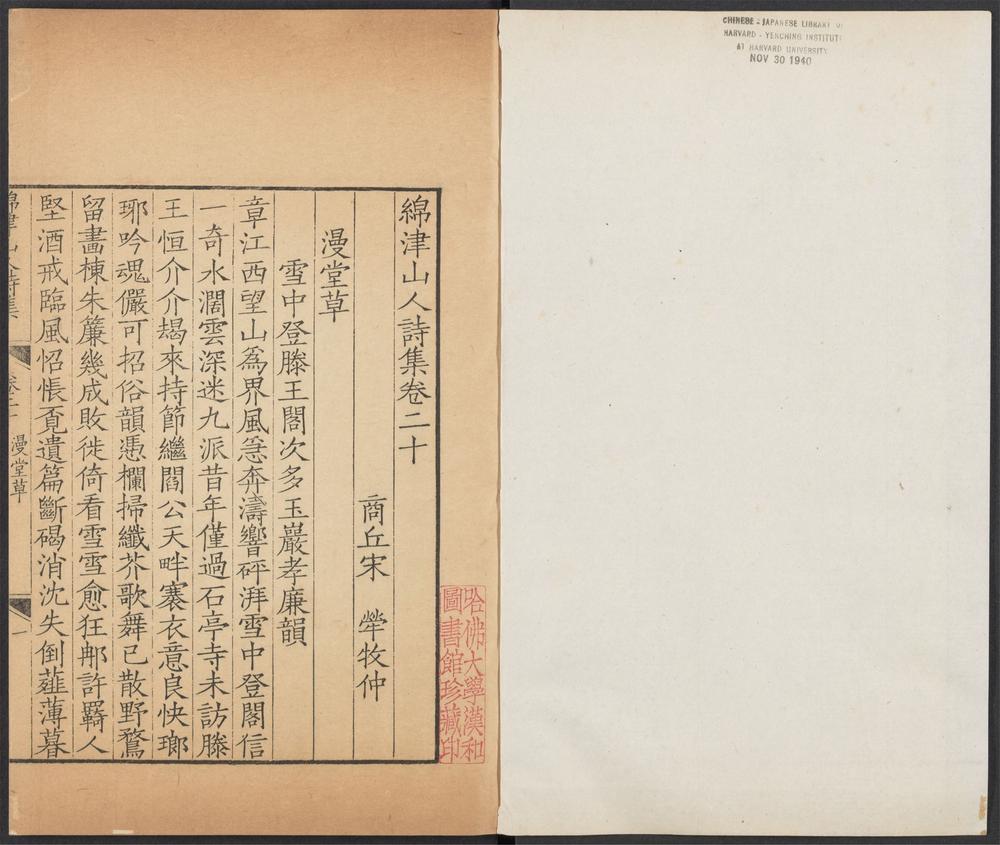 CHINESE - JAPANESE LIBRARY OF
HARVARD - YENCHING INSTITUTE
AT HARVARD UNIVERSITY
NOV 30 1940
哈佛大學漢和
圖書館珍藏印
綿津山人詩集卷二十
商丘宋　犖牧仲
漫堂草
雪中登滕王閣次多玉巖孝廉韻
章江西望山爲界風急奔濤響砰湃雪中登閣信
一奇水濶雲深迷九派昔年僅過石亭寺未訪滕
王恒介介朅來持節繼閻公天畔褰衣意良快瑯
琊吟魂儼可招俗韻憑欄掃纖芥歌舞已散野鶩
留畵棟朱簾幾成敗徙倚看雪雪愈狂郍許羇人
堅酒戒臨風怊悵覔遺篇斷碣消沈失倒薤薄暮
綿津山人詩集
卷二十
漫堂草
一